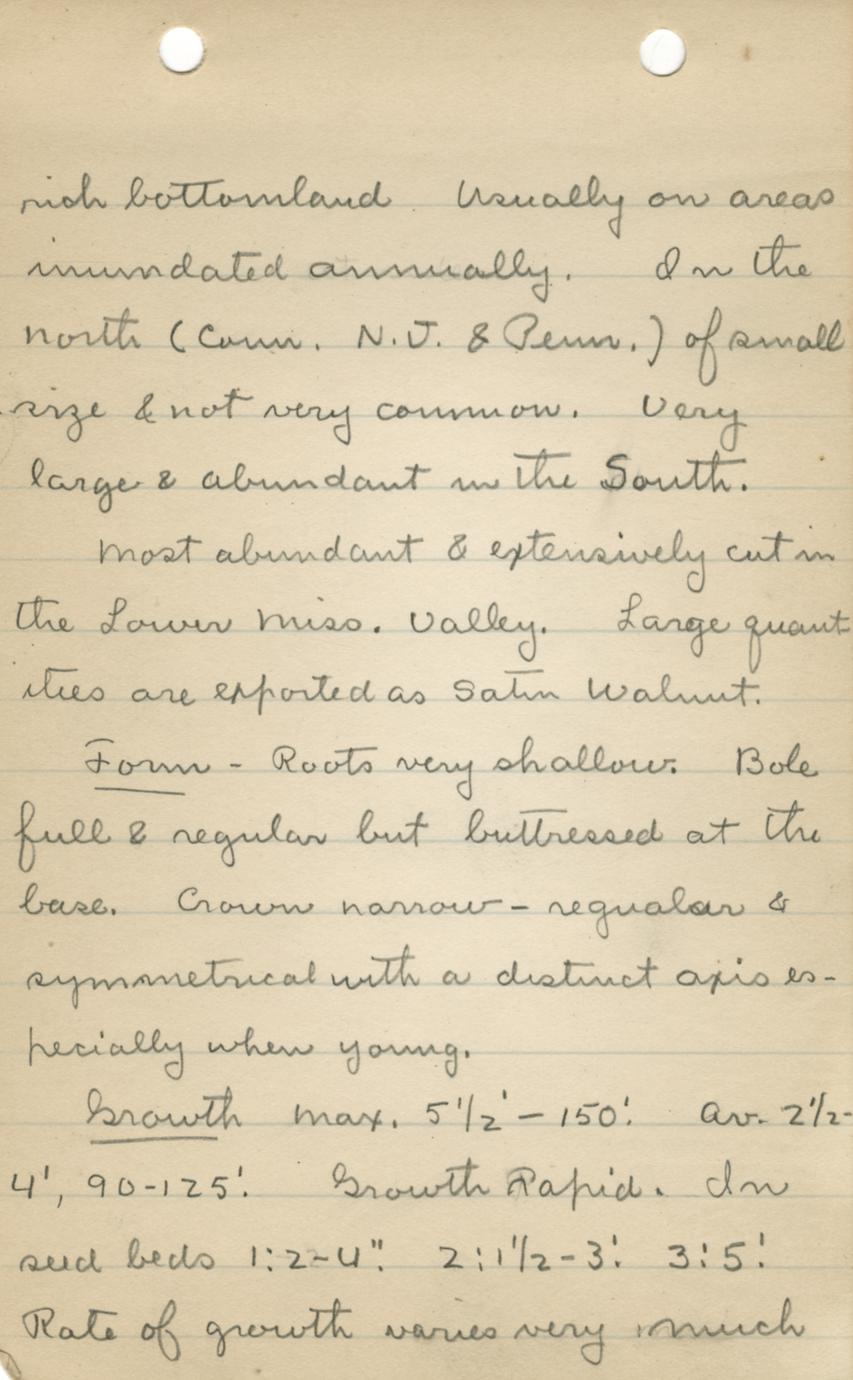 rich bottomland. Usually on areas
inundated annually. In the
north (Conn. N.J. & Penn.) of small
size & not very common. Very
large & abundant in the South.
Most abundant & extensively cut in
the Lower Miss. Valley. Large quant
ities are exported as Satin Walnut.
Form - Roots very shallow. Bole
full & regular but buttressed at the
base. Crown narrow - regualar &
symmetrical with a distinct axis es-
pecially when young.
Growth Max. 5 1/2' - 150'. Av. 2 1/2-
4', 90-125'. Growth Rapid. In
seed beds 1:2-4". 2:1 1/2-3'. 3:5'.
Rate of growth varies very much